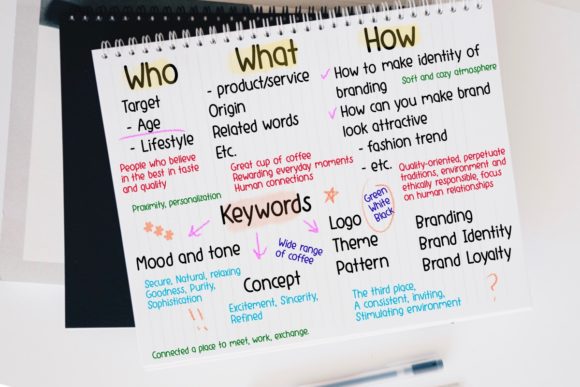 Who
Target
- Age
- Lifestyle
People who believe
in the best in taste
and quality
Proximity, personalization
What
- product/service
Origin
Related words
Etc.
Great cup of coffee
Rewarding everyday moments
Human connections
How
How to make identity of
branding
Soft and cozy atmosphere
How can you make brand
look attractive
- fashion trend
- etc.
Quality-oriented, perpetuate
traditions, environment and
ethically responsible, focus
on human relationships
Keywords
Mood and tone
Secure, Natural, relaxing
Goodness, Purity,
Sophistication
!!
Wide range
of coffee
Concept
Excitement, Sincerity,
Refined
Green
White
Black
Logo
Theme
Pattern
Branding
Brand Identity
Brand Loyalty
The third place,
A consistent, inviting,
Stimulating environment
?
Connected a place to meet, work, exchange.